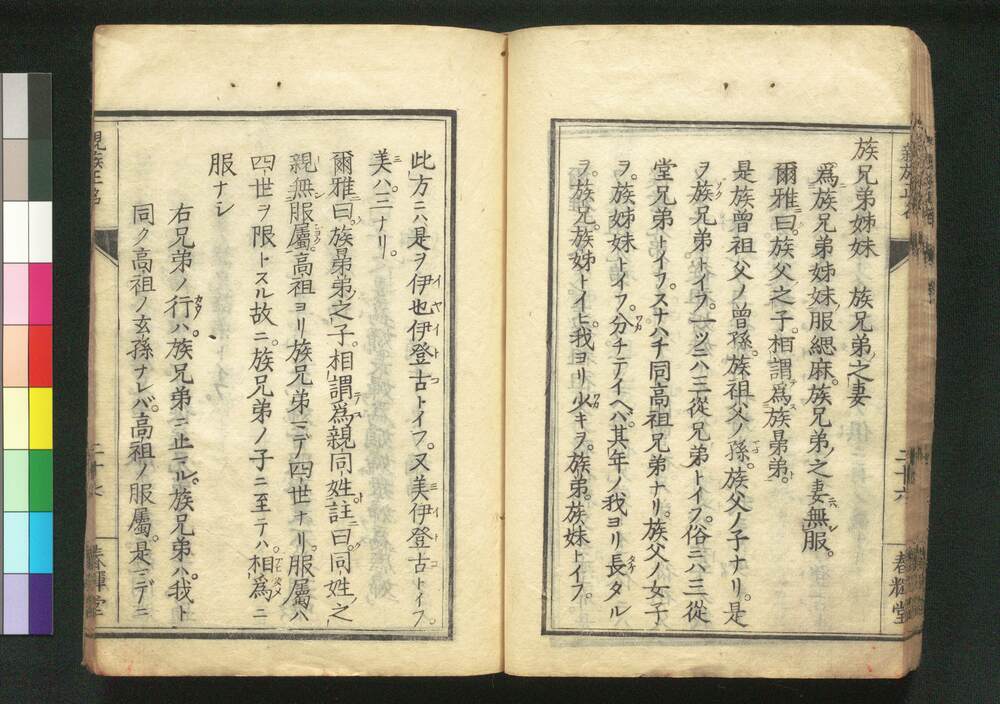 族兄弟姊妹　族兄弟ノ之妻
爲族兄弟姊妹服緦麻。族兄弟ノ之妻無服。
爾雅曰。族父之子。相謂爲族晜弟。
是族曾祖父ノ曾孫。族祖父ノ孫。族父ノ子ナリ。是
ヲ族兄弟トイフ。一ツニハ三從兄弟トイフ。俗ニハ三從
堂兄弟トイフ。スナハチ同高祖兄弟ナリ。族父ノ女子
ヲ。族姊妹トイフ。分チテイヘバ。其年ノ我ヨリ長タル
ヲ。族兄。族姊トイヒ。我ヨリ少キヲ。族弟。族妹トイフ。
二十六
春輝堂
此方ニハ是ヲ伊也伊登古トイフ。又美伊登古トイフ。
美ハ。三ナリ。
爾雅曰。族晜弟之子。相謂爲親同姓。註曰。同姓ノ之
親無服屬。高祖ヨリ族兄弟マデ四世ナリ。服屬ハ
四世ヲ限トスル故ニ。族兄弟ノ子ニ至テハ。相爲ニ
服ナシ
右兄弟ノ行ハ。族兄弟ニ止マル。族兄弟ハ。我ト
同ク高祖ノ玄孫ナレバ。高祖ノ服屬。是マデニ
二十七
春輝堂